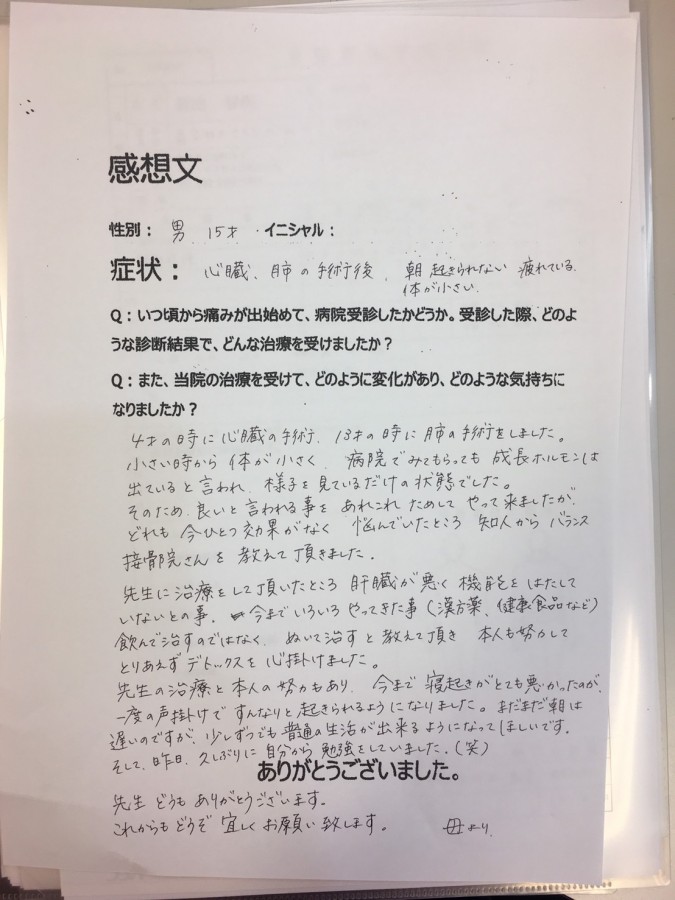 感想文
性別： 男 15才 ・イニシャル：
症状： 心臓、肺の手術後、朝起きられない 疲れている。
体が小さい。
Q：いつ頃から痛みが出始めて、病院受診したかどうか。受診した際、どのよ
うな診断結果で、どんな治療を受けましたか？
Q：また、当院の治療を受けて、どのように変化があり、どのような気持ちに
なりましたか？
4才の時に心臓の手術、13才の時に肺の手術をしました。
小さい時から体が小さく、病院でみてもらっても成長ホルモンは
出ていると言われ、様子を見ているだけの状態でした。
そのため、良いと言われる事をあれこれためしてやって来ましたが、
どれも今ひとつ効果がなく 悩んでいたところ 知人からバランス
接骨院さんを教えて頂きました。
先生に治療をして頂いたところ 肝臓が悪く機能をはたして
いないとの事。今までいろいろやってきた事（漢方薬、健康食品など）
飲んで治すのではなく、ぬいて治すと教えて頂き 本人も努力して
とりあえずデトックスを心掛けました。
先生の治療と本人の努力もあり、今まで寝起きがとても悪かったのが、
一度の声掛けですんなりと起きられるようになりました。まだまだ朝は
遅いのですが、少しずつでも普通の生活が出来るようになってほしいです。
そして、昨日、久しぶりに自分から勉強をしていました。（笑）
ありがとうございました。
先生どうもありがとうございます。
これからもどうぞ宜しくお願い致します。 母より。